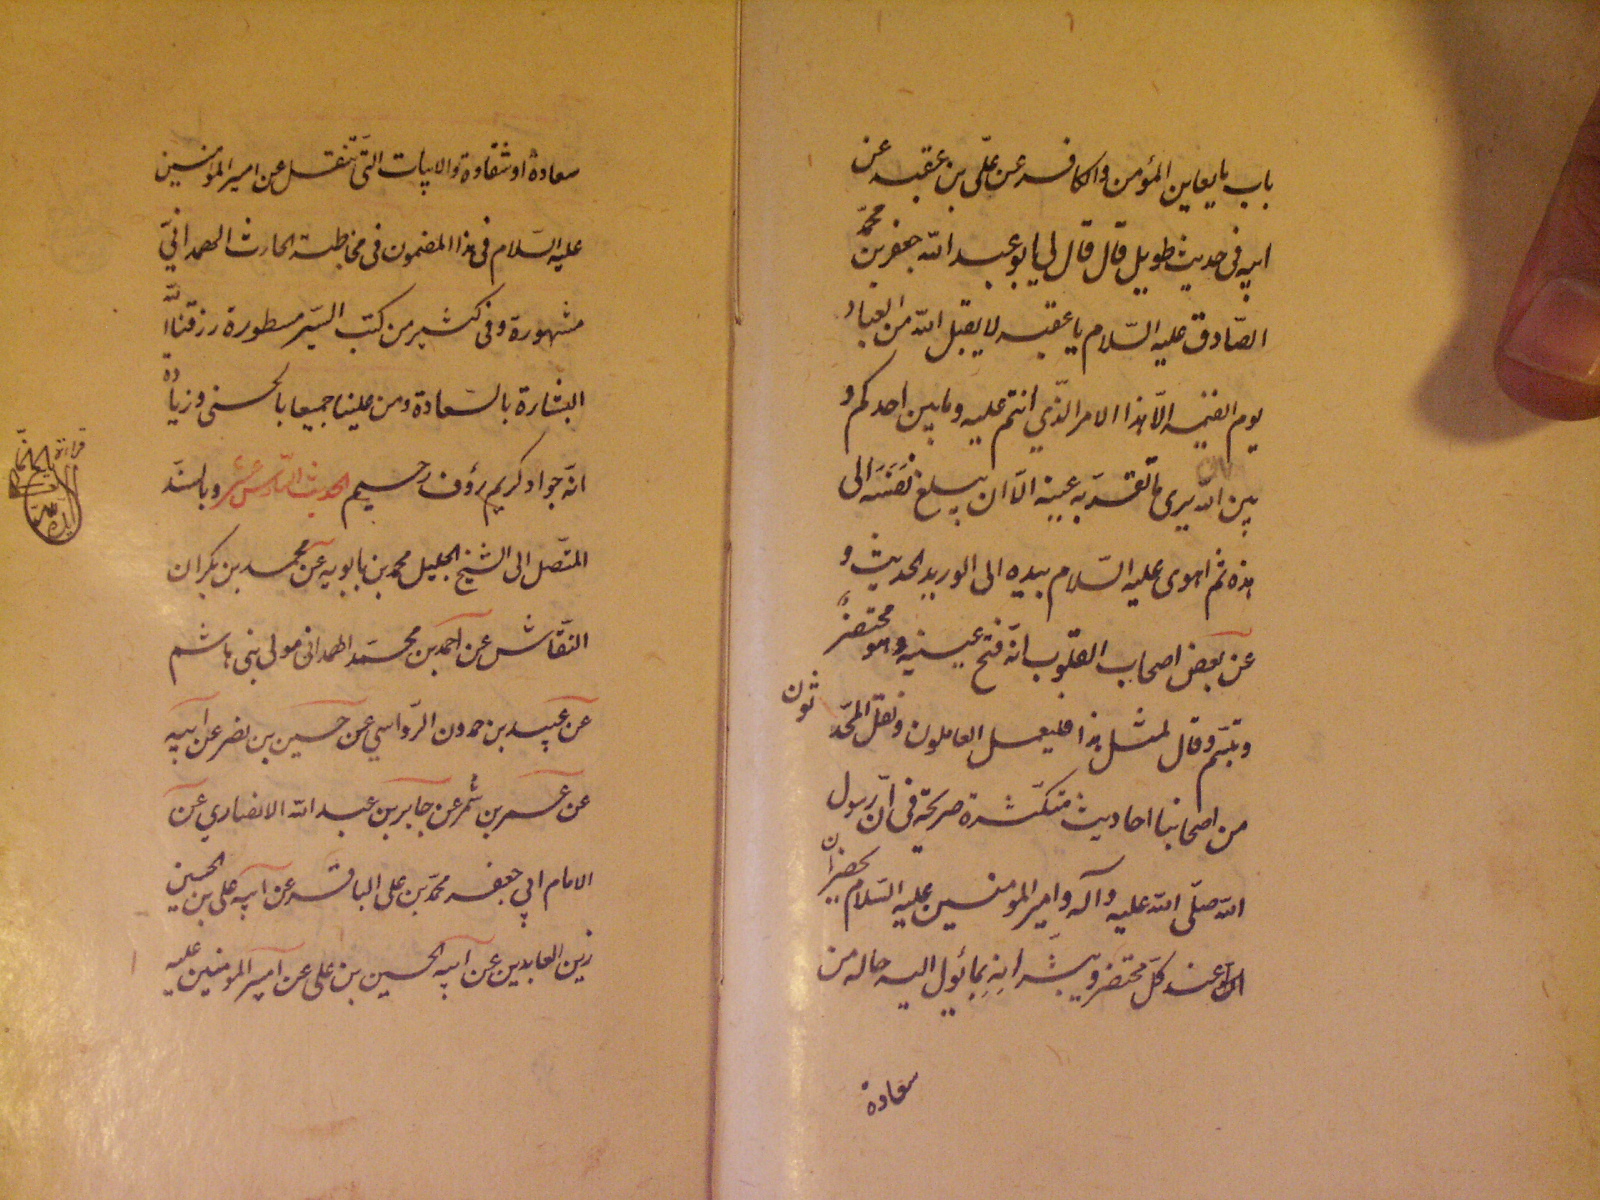 باب ما يعاين المؤمن والكافر عن علّي بن عقبه عن
ابيه في حديث طويل قال قال لي ابو عبد الله جعفر بن محمّد
الصّادق عليه السّلام يا عقبه لا يقبل الله من العباد
يوم القيمه الّا هذا الامر الذّي انتم عليه وما بين احدكم و
بين ان يرى ما تقر به عينه الّا ان يبلغ نَفَسَه الى
هذه ثم اهوى عليه السّلام بيده الى الوريد الحديث و
عن بعض اصحاب القلوب انّه فتح عينيه وهو محتضرٌ
وتبسّم وقال لمثل هذا فليعمل العاملون ونقل المحّدثون
من اصحابنا احاديث متكثّرة صريحة في انّ رسول
الله صلّى الله عليه وآله وامير المومنين عليه السّلام يحضران
عند كلّ محتضر ويبشّرانِهِ بما يئول اليه حاله من
سعادة
سعادة او شقاوة والابيات التّي تنقل عن امير المومنين
عليه السّلام في هذا المضمون في مخاطبة الحارث الهمدانيّ
مشهورة وفي كثير من كتب السّير مسطورة رزقنا الله
البشارة بالسّعادة ومن علينا جميعا بالحسنى وزيادة
انّه جواد كريم رؤف رحيم الحديث السّادس عشر وبالسنّد
المتّصل الى الشيخ الجليل محمد بن بابويه عن محمد بن بكران
النقّاش عن احمد بن محمّد الهمداني مولى بني هاشم
عن عبيد بن حمدون الرّواسي عن حسين بن نصر عن ابيه
عن عمر بن شمر عن جابر بن عبد الله الانصاري عن
الامام ابي جعفر محمّد بن علي الباقر عن ابيه علي بن الحسين
زين العابدين عن ابيه الحسين بن علي عن امير المومنين عليه